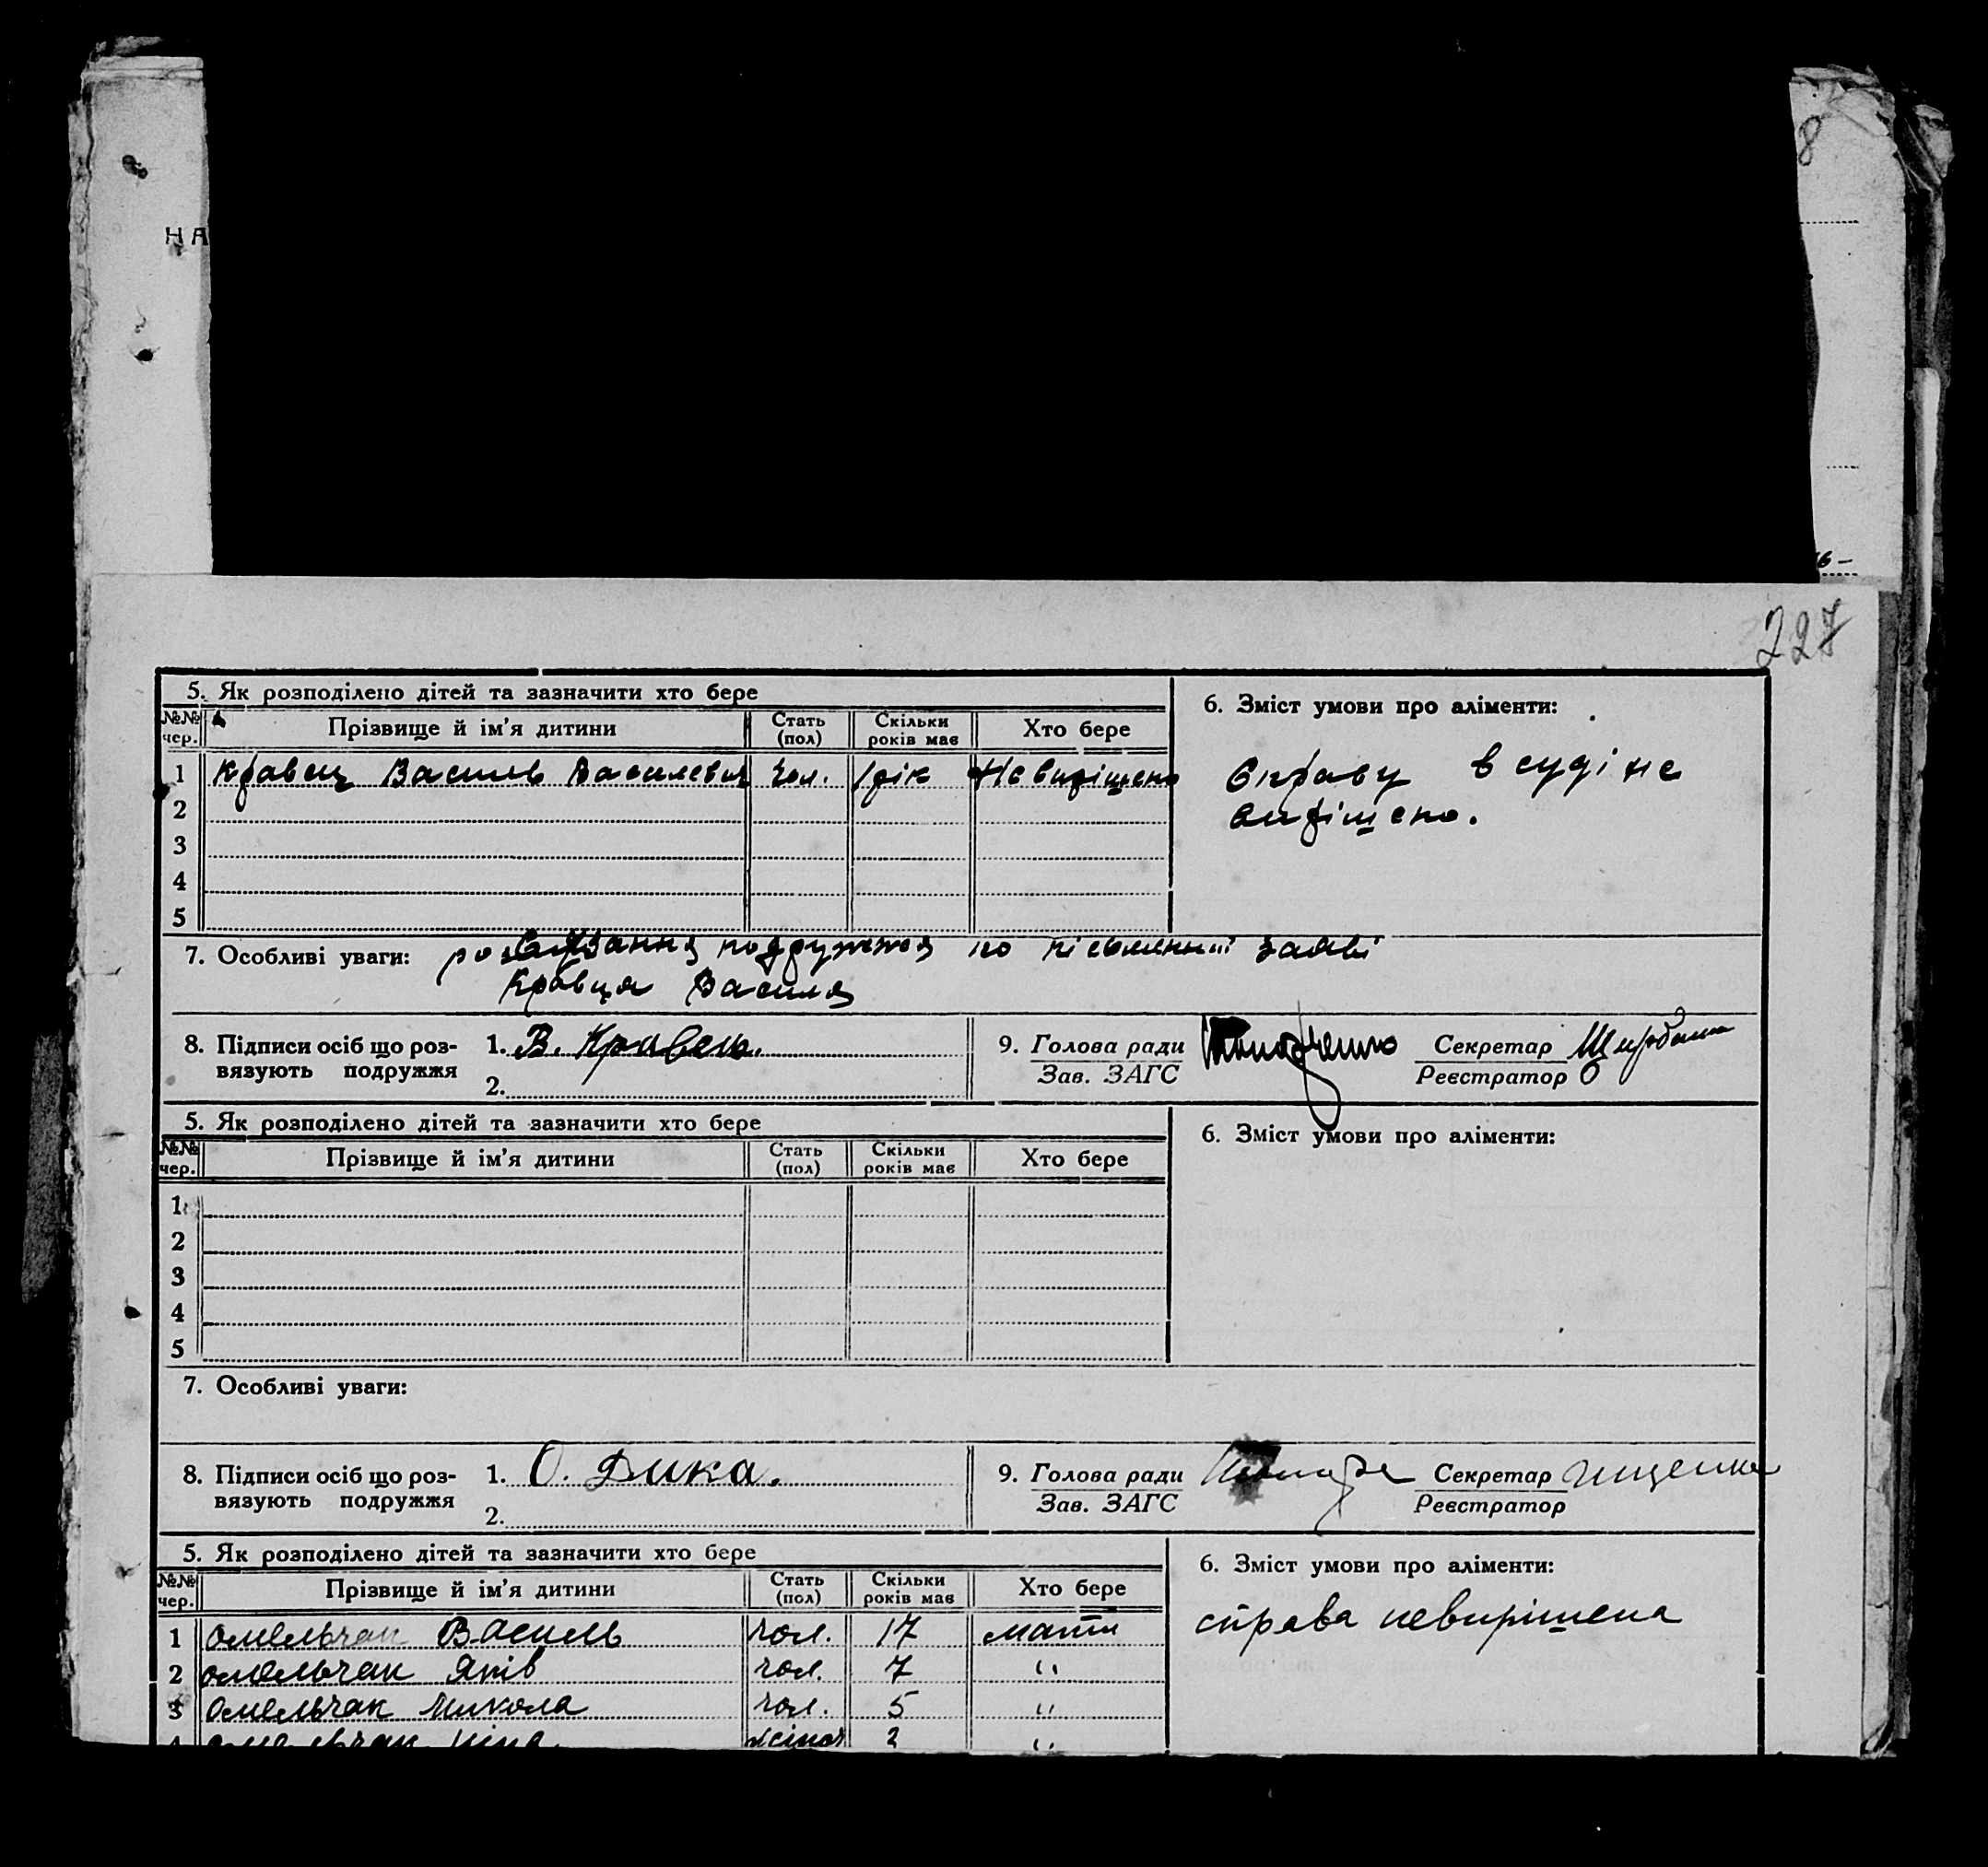 НА
8
6-
227
5. Як розподілено дітей та зазначити хто бере
6. Зміст умови про аліменти:
№№ чер. Прізвище й ім'я дитини Стать (пол) Скільки років має Хто бере
1 Кравец Василь Васильевич чол. 1 рік Не вирішено
Справу в суді не
вирішено.
2
3
4
5
7. Особливі уваги: розвязання подружжя по письменній заяві
Кравця Василя
8. Підписи осіб що роз-
вязують подружжя
1. В. Кравець.
2.
9. Голова ради
Зав. ЗАГС
Секретар
Реєстратор
5. Як розподілено дітей та зазначити хто бере
6. Зміст умови про аліменти:
№№ чер. Прізвище й ім'я дитини Стать (пол) Скільки років має Хто бере
1
2
3
4
5
7. Особливі уваги:
8. Підписи осіб що роз-
вязують подружжя
1. О. Дика.
2.
9. Голова ради
Зав. ЗАГС
Секретар
Реєстратор
5. Як розподілено дітей та зазначити хто бере
6. Зміст умови про аліменти:
№№ чер. Прізвище й ім'я дитини Стать (пол) Скільки років має Хто бере
1 Омельчак Василь чол. 17 мати
справа невирішена
2 Омельчак Яків чол. 7 "
3 Омельчак Микола чол. 5 "
4 Омельчак Ніна жіноч 2 "